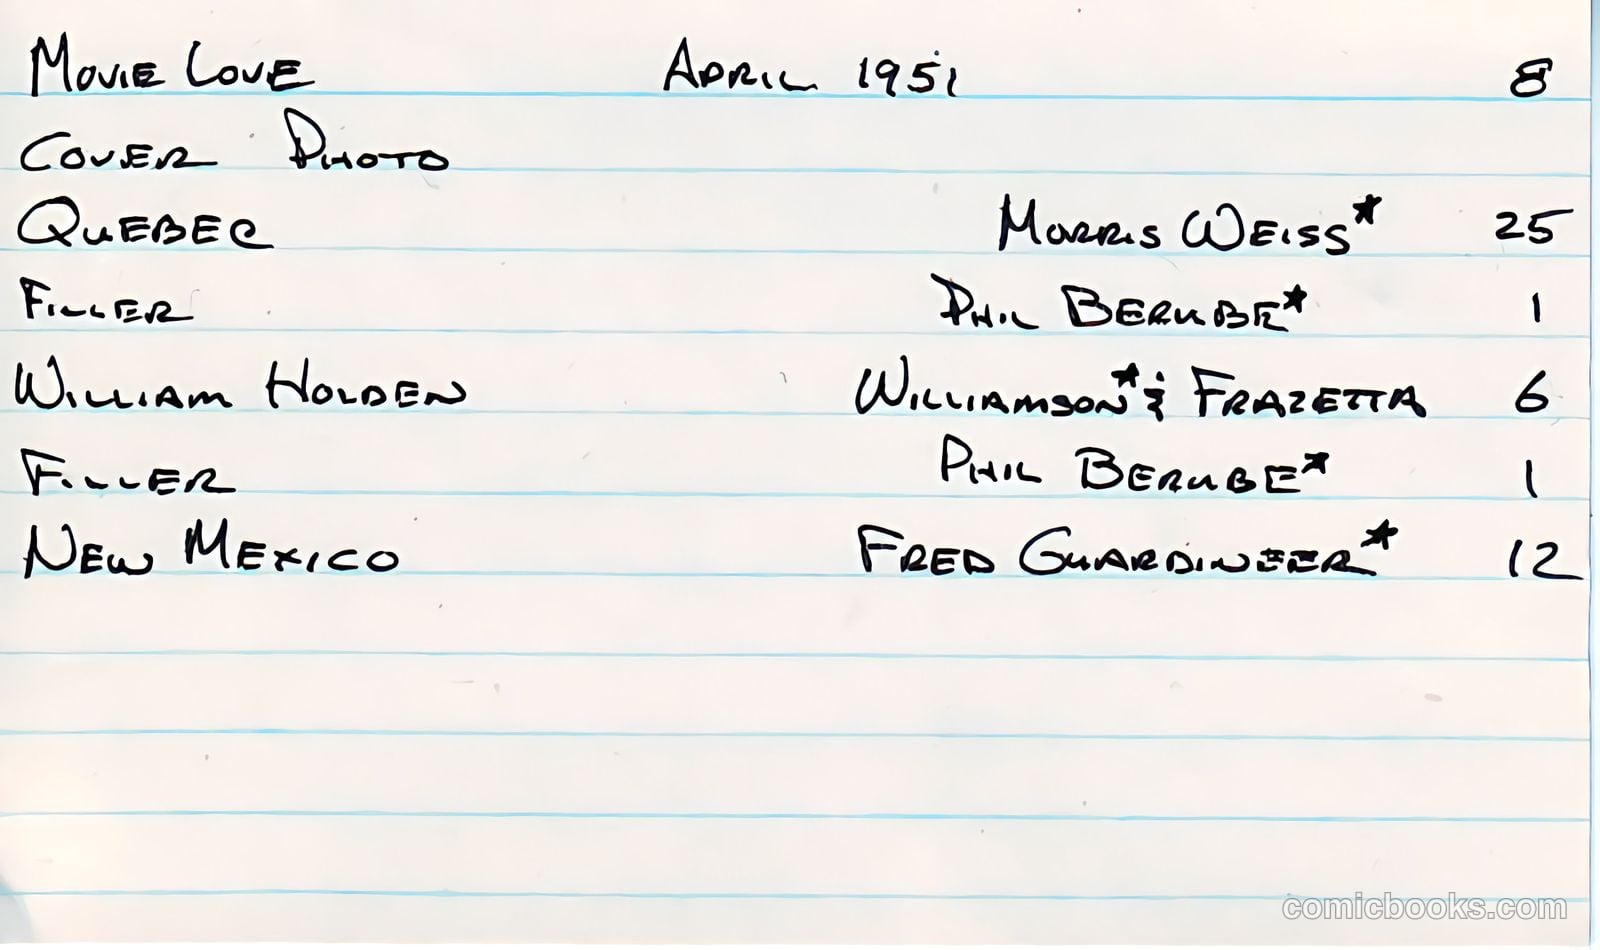 MOVIE LOVE APRIL 1951 8
COVER PHOTO
QUEBEC MORRIS WEISS* 25
FILLER PHIL BERUBE* 1
WILLIAM HOLDEN WILLIAMSON* & FRAZETTA 6
FILLER PHIL BERUBE* 1
NEW MEXICO FRED GUARDINEER* 12
comicbooks.com